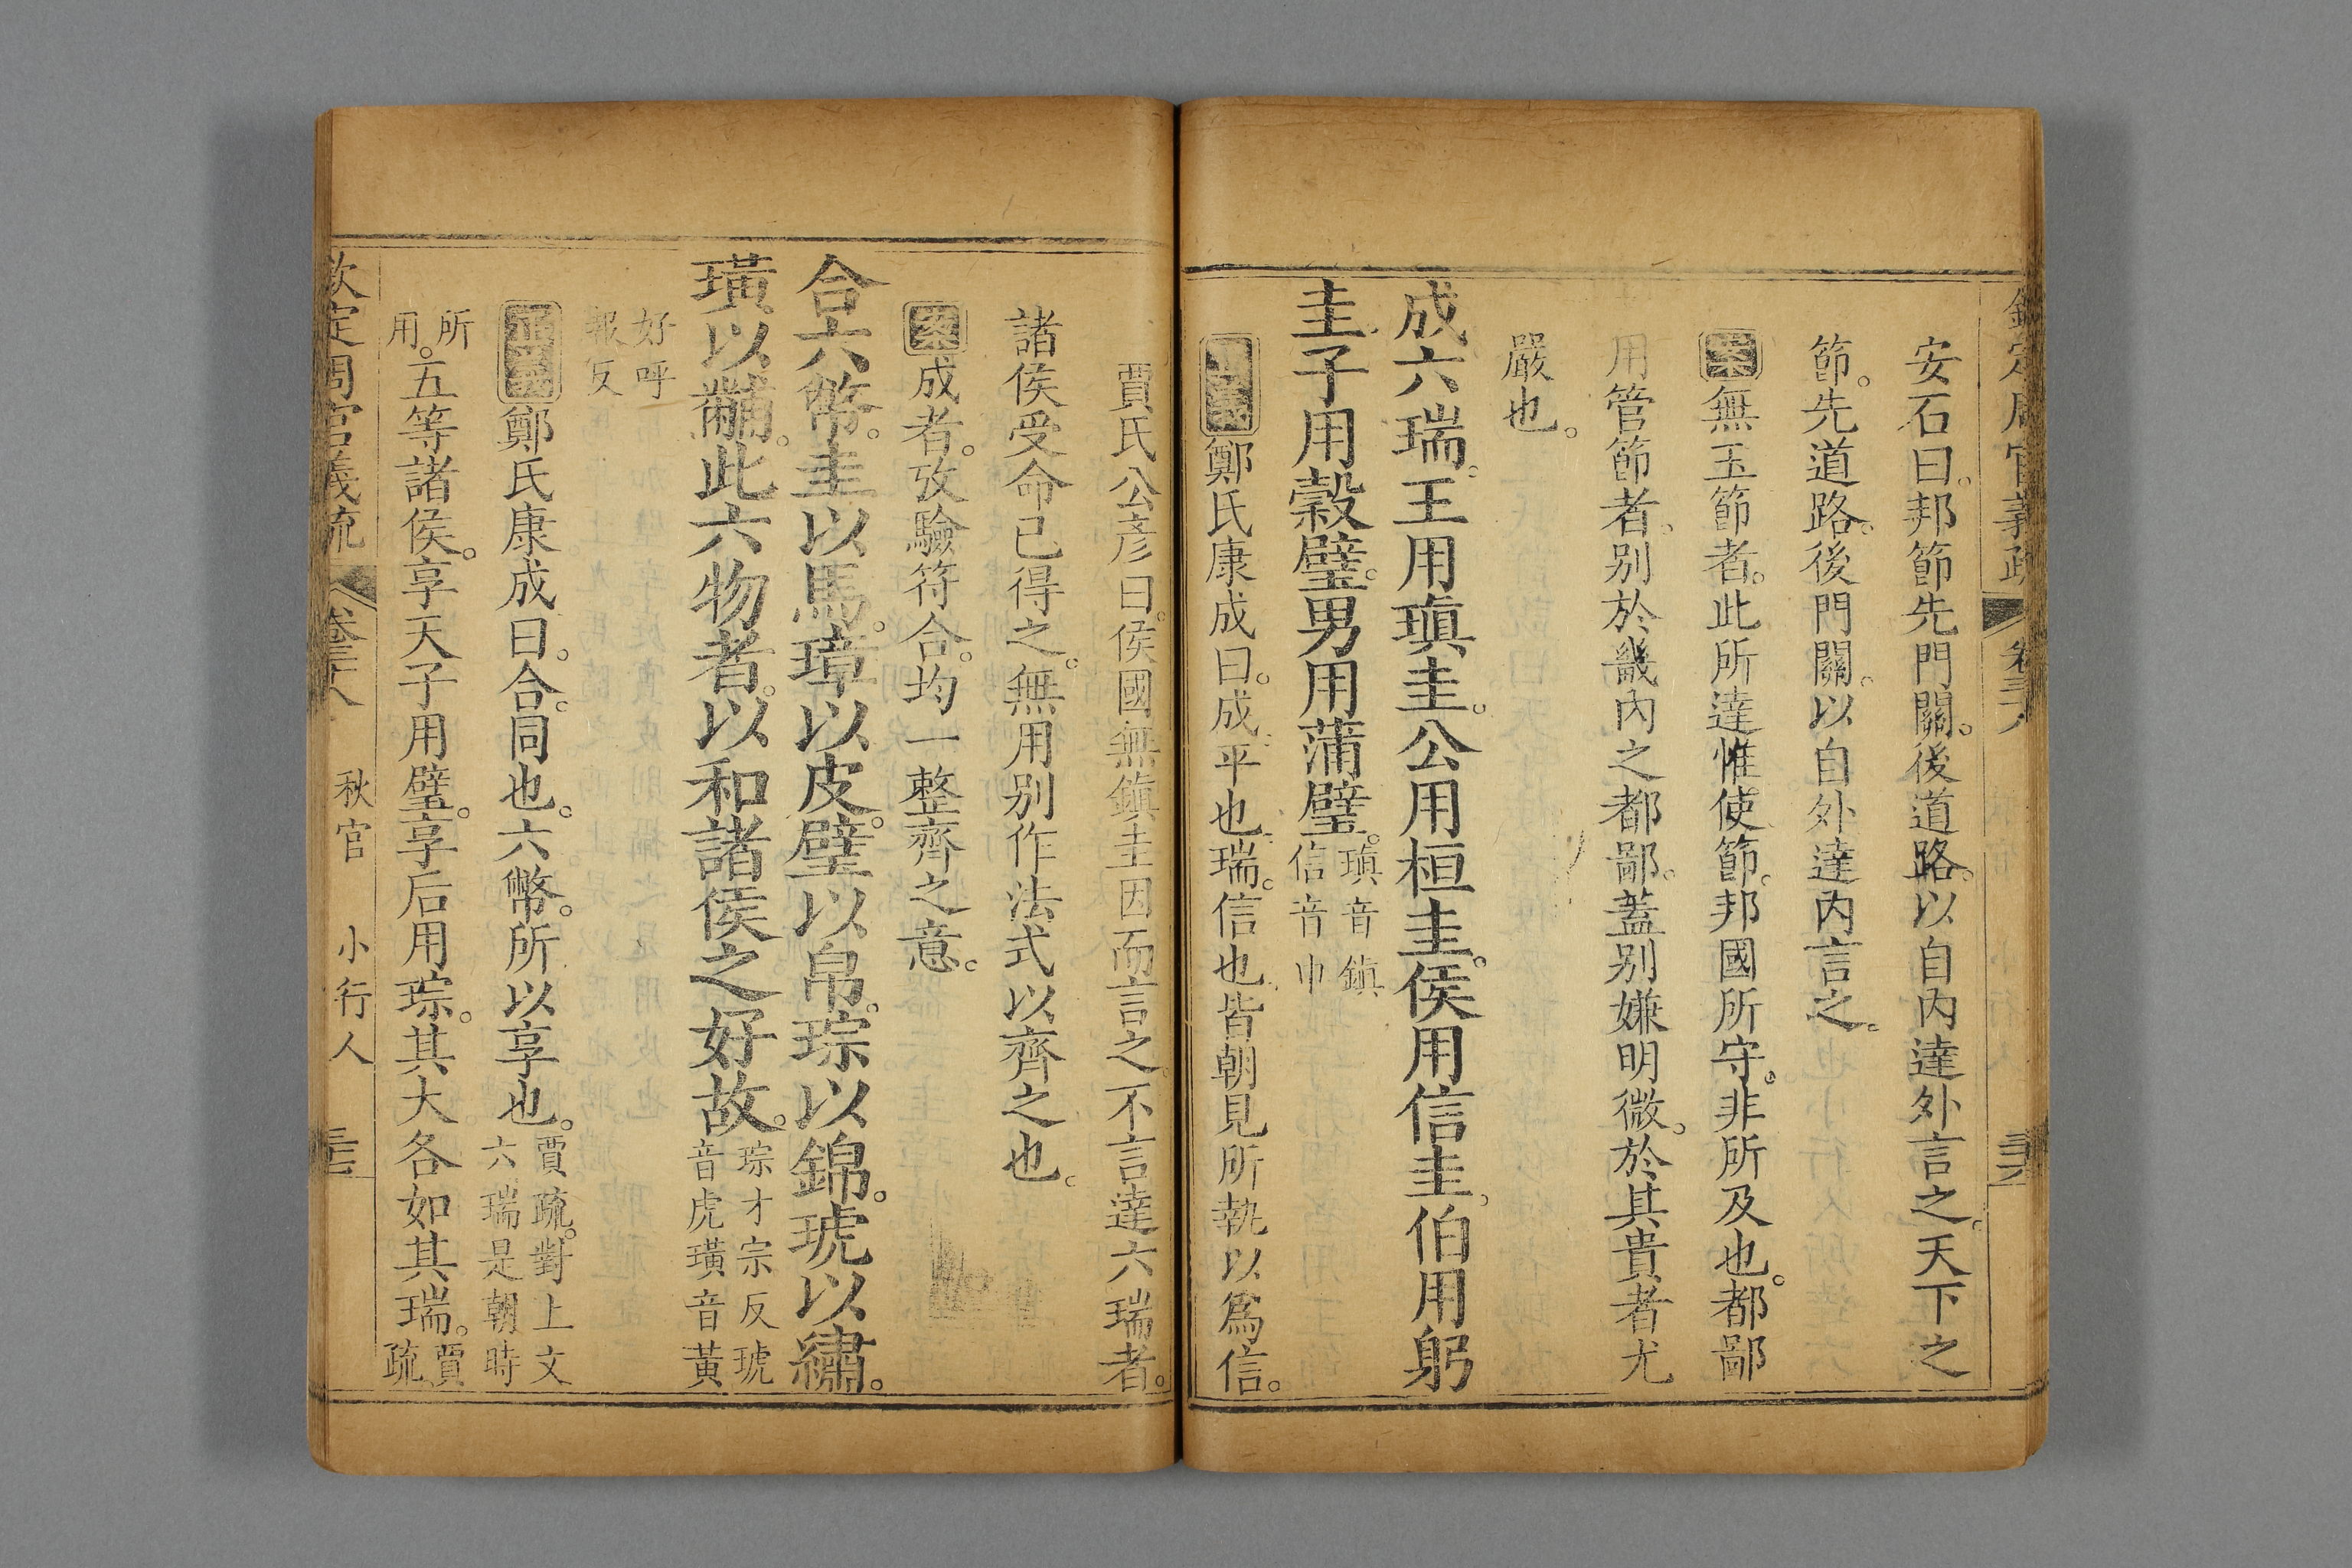 欽定周官義疏 卷三十八 三六
安石曰。邦節先門關。後道路。以自內達外言之。天下之
節。先道路。後門關。以自外達內言之。
案無玉節者。此所達惟使節。邦國所守。非所及也。都鄙
用管節者。別於畿內之都鄙。蓋別嫌明微。於其貴者尤
嚴也。
成六瑞。王用瑱圭。公用桓圭。侯用信圭。伯用躬
圭。子用穀璧。男用蒲璧。瑱音鎮信音申
正義鄭氏康成曰。成。平也。瑞。信也。皆朝見所執以爲信。
賈氏公彥曰。侯國無鎮圭因而言之。不言達六瑞者。
諸侯受命已得之。無用別作法式以齊之也。
案成者。攷驗符合。均一整齊之意。
合六幣。圭以馬。璋以皮。璧以帛。琮以錦。琥以繡。
璜以黼。此六物者。以和諸侯之好故。琮才宗反琥音虎璜音黃
好呼報反
正義鄭氏康成曰。合。同也。六幣。所以享也。賈疏。對上文六瑞是朝時
所用。五等諸侯。享天子用璧。享后用琮。其大各如其瑞。賈疏
欽定周官義疏 卷三十八 秋官 小行人 三七